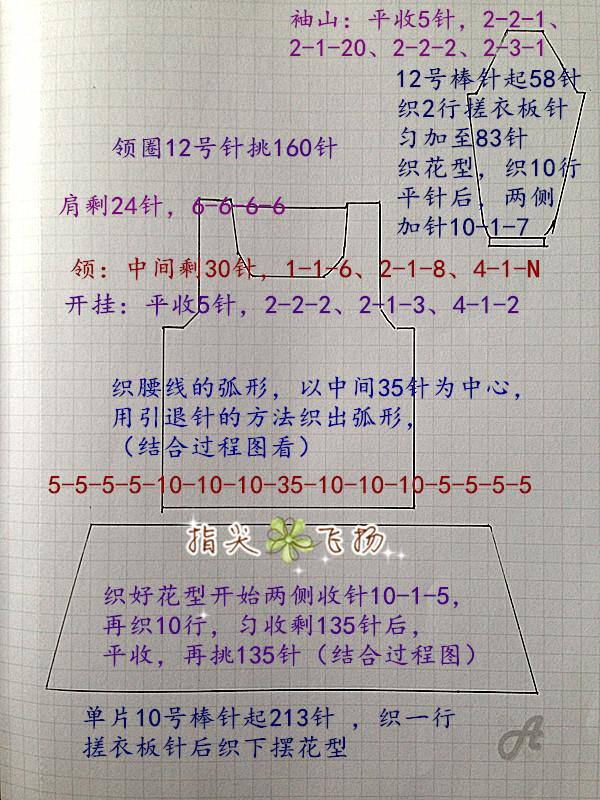 袖山：平收5针，2-2-1、
2-1-20、2-2-2、2-3-1
12号棒针起58针
织2行搓衣板针
匀加至83针
织花型，织10行
平针后，两侧
加针10-1-7
领圈12号针挑160针
肩剩24针，6-6-6-6
领：中间剩30针，1-1-6、2-1-8、4-1-N
开挂：平收5针，2-2-2、2-1-3、4-1-2
织腰线的弧形，以中间35针为中心，
用引退针的方法织出弧形，
（结合过程图看）
5-5-5-5-10-10-10-35-10-10-10-5-5-5-5
指尖飞扬
织好花型开始两侧收针10-1-5，
再织10行，匀收剩135针后，
平收，再挑135针（结合过程图）
单片10号棒针起213针 ，织一行
搓衣板针后织下摆花型
A